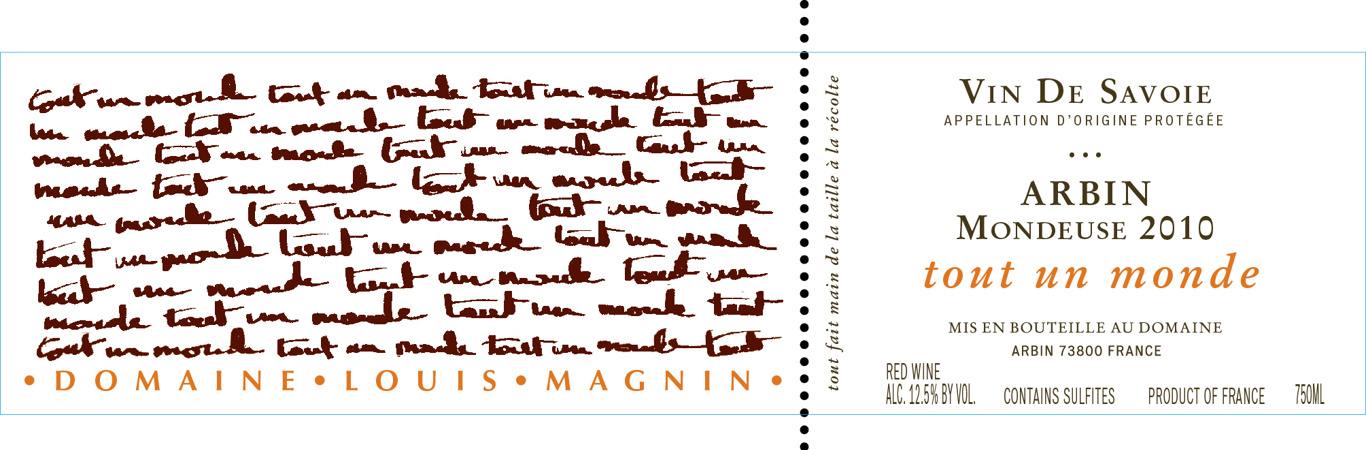 tout un monde tout un monde tout un monde tout
un monde tout un monde tout un monde tout un
monde tout un monde tout un monde tout un
monde tout un monde tout un monde tout
un monde tout un monde tout un monde
tout un monde tout un monde tout un monde
tout un monde tout un monde tout un
monde tout un monde tout un monde tout
tout un monde tout un monde tout un monde tout
• DOMAINE • LOUIS • MAGNIN •
tout fait main de la taille à la récolte
VIN DE SAVOIE
APPELLATION D'ORIGINE PROTÉGÉE
...
ARBIN
MONDEUSE 2010
tout un monde
MIS EN BOUTEILLE AU DOMAINE
ARBIN 73800 FRANCE
RED WINE
ALC. 12.5% BY VOL. CONTAINS SULFITES PRODUCT OF FRANCE 750ML